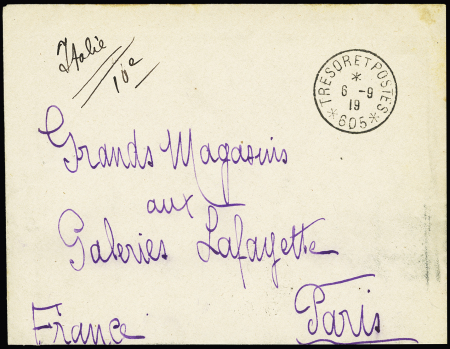 Italie
10e
TRESOR ET POSTES
*
6 - 9
19
* 605 *
Grands Magasins
aux
Galeries Lafayette
France Paris